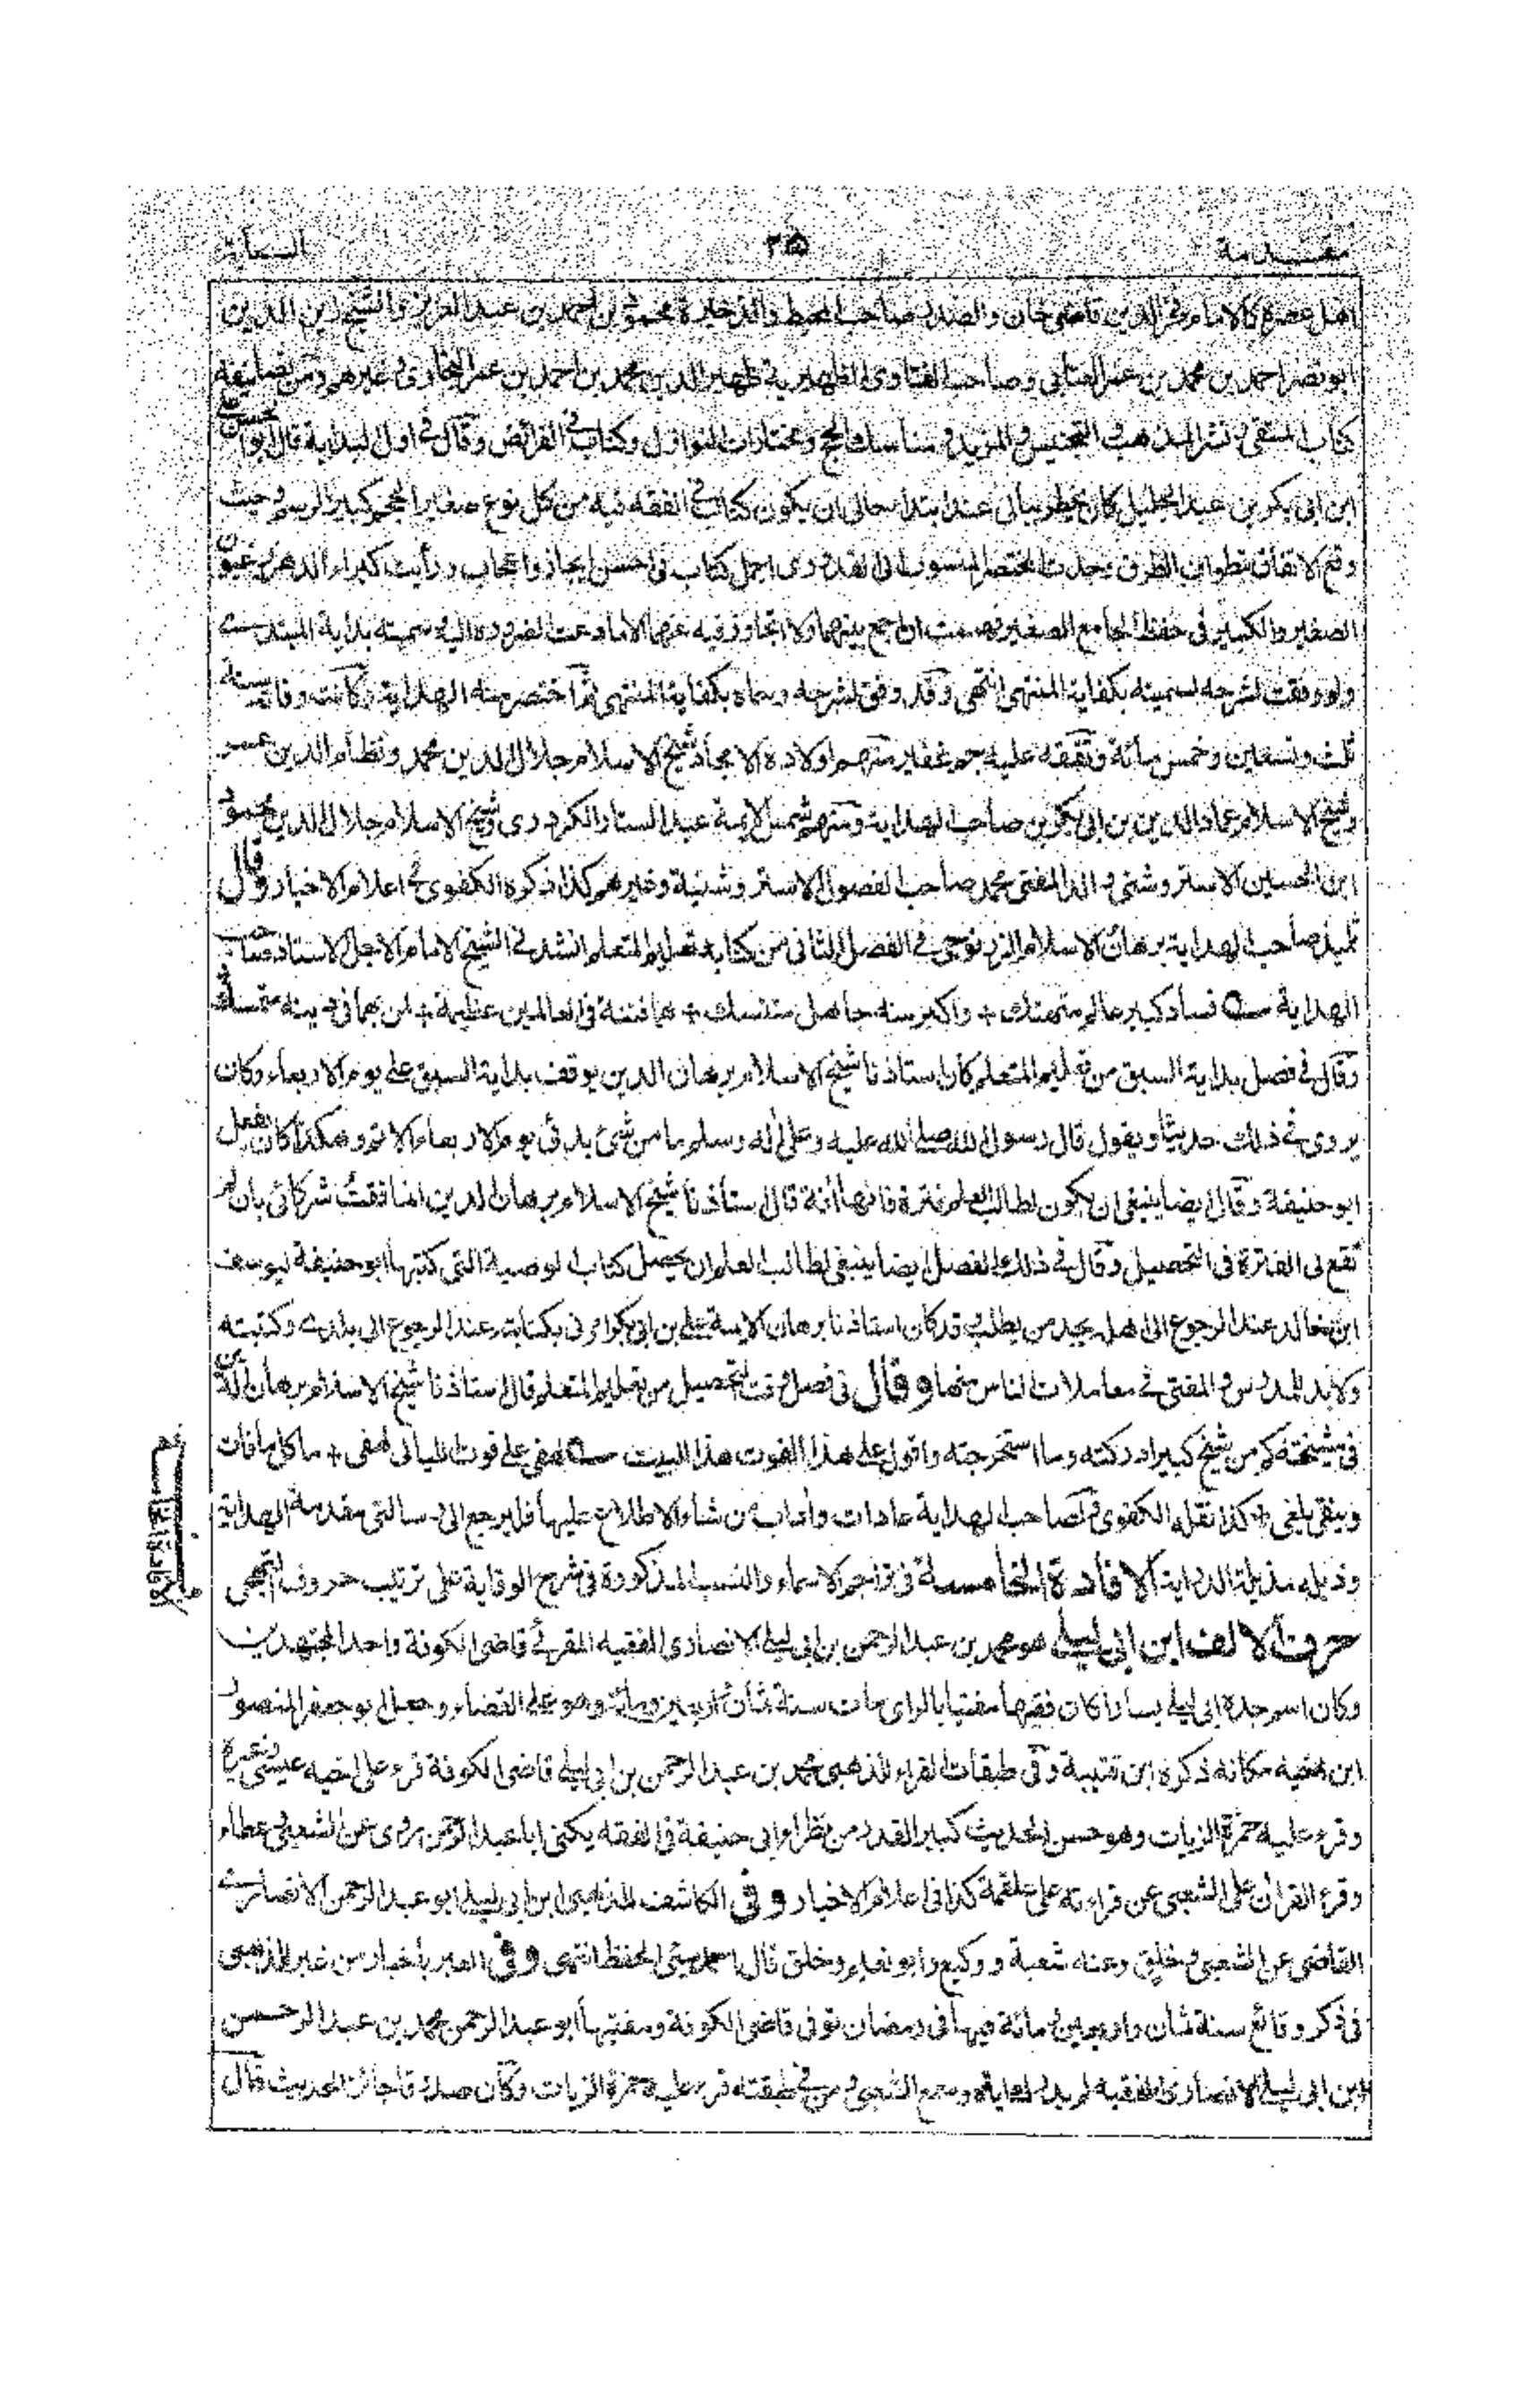 مقدمة ٢٥ السعاية
اهل عصره كالامام فخر الدين قاضي خان والصدر صاحب المحيط والذخيرة محمود بن احمد بن عبد العزيز والشيخ زين الدين
ابو نصر احمد بن محمد بن عمر العتابي وصاحب الفتاوى الظهيرية ظهير الدين محمد بن احمد بن عمر البخاري وغيرهم ومن تصانيفه
كتاب المنتقى ونشر المذهب والتجنيس والمزيد ومناسك الحج ومختارات النوازل وكتاب في الفرائض وقال في اول البداية قال ابو الحسن علي
ابن ابي بكر بن عبد الجليل كان يخطر ببالي عند ابتداء حالي ان يكون كتاب في الفقه فيه من كل نوع صغير الحجم كبير الرسم وحيث
وقع الاتفاق بتطواف الطرق وجدت المختصر المنسوب الى القدوري اجمل كتاب في احسن ايجاز واعجاب ورأيت كبراء الدهر يرغبون
الصغير والكبير في حفظ الجامع الصغير فهممت ان اجمع بينهما ولا اتجاوز فيه عنهما الا ما دعت الضرورة اليه وسميته بداية المبتدي
ولو وفقت لشرحه لسميته بكفاية المنتهي انتهى وقد وفق لشرحه وسماه بكفاية المنتهي ثم اختصر منه الهداية وكانت وفاته سنة
ثلث وتسعين وخمس مائة وتفقه عليه جم غفير منهم اولاده الامجاد شيخ الاسلام جلال الدين محمد ونظام الدين عمر
وشيخ الاسلام عماد الدين بن ابي بكر بن صاحب الهداية ومنهم شمس الايمة عبد الستار الكردري وشيخ الاسلام جلال الدين محمود
ابن الحسين الاستروشني والد المفتي محمد صاحب الفصول الاستروشنية وغيرهم كذا ذكره الكفوي في اعلام الاخيار وقال
تلميذ صاحب الهداية برهان الاسلام الزرنوجي في الفصل الثاني من كتابه تعليم المتعلم انشدني الشيخ الامام الاجل الاستاذ صاحب
الهداية فساد كبير عالم متهتك + واكبر منه جاهل متنسك + هما فتنة في العالمين عظيمة + لمن بهما في دينه متمسك
وقال في فصل بداية السبق من تعليم المتعلم كان استاذنا شيخ الاسلام برهان الدين يوقف بداية السبق على يوم الاربعاء وكان
يروي في ذلك حديثا ويقول قال رسول الله صلى الله عليه وعلى آله وسلم ما من شئ بدئ يوم الاربعاء الا تم وهكذا كان يفعل
ابو حنيفة وقال ايضا ينبغي ان لا يكون لطالب العلم فترة فانها آفة قال استاذنا شيخ الاسلام برهان الدين انما فقت شركائي بان لم
تقع لي الفترة في التحصيل وقال في ذلك الفصل ايضا ينبغي لطالب العلم ان يحصل كتاب الوصية التي كتبها ابو حنيفة ليوسف
ابن خالد عند الرجوع الى اهله يجد من يطلب وقد كان استاذنا برهان الايمة علي بن ابي بكر امرني بكتابته عند الرجوع الى بلدي وكتبته
ولا بد للمدرس والمفتي في معاملات الناس منها وقال في فصل وقت التحصيل من تعليم المتعلم قال استاذنا شيخ الاسلام برهان الدين
في مشيخته كم من شيخ كبير ادركته وما استخرجته واقول على هذا الفوت هذا البيت لهفي على فوت الليالي لهفي + ما كل ما فات
ويبقى يلفى + كذا نقله الكفوي ولصاحب الهداية عادات وآداب من شاء الاطلاع عليها فليرجع الى رسالتي مقدمة الهداية
وذيله مذيلة الدراية الافادة الخامسة في تراجم الاسماء والنسب المذكورة في شرح الوقاية على ترتيب حروف التهجي
حرف الالف ابن ابي ليلى هو محمد بن عبد الرحمن بن ابي ليلى الانصاري الفقيه المقرئ قاضي الكوفة واحد المجتهدين
وكان اسم جده ابي ليلى يسارا كان فقيها مفتيا بالراي مات سنة ثمان اربعين ومائة وهو على القضاء وجعل ابو جعفر المنصور
ابن اخيه مكانه ذكره ابن قتيبة وفي طبقات القراء للذهبي محمد بن عبد الرحمن بن ابي ليلى قاضي الكوفة قرء على اخيه عيسى وغيره
وقرء عليه حمزة الزيات وهو حسن الحديث كبير القدر من نظراء ابي حنيفة في الفقه يكنى ابا عبد الرحمن روى عن الشعبي وعطاء
وقرء القران على الشعبي عن قراءته على علقمة كذا في اعلام الاخيار وفي الكاشف للذهبي ابن ابي ليلى ابو عبد الرحمن الانصاري
القاضي عن الشعبي وخلق وعنه شعبة ووكيع وابو نعيم وخلق قال احمد سيئ الحفظ انتهى وفي العبر بأخبار من غبر للذهبي
في ذكر وقائع سنة ثمان واربعين ومائة فيها في رمضان توفي قاضي الكوفة ومفتيها ابو عبد الرحمن محمد بن عبد الرحمن
ابن ابي ليلى الانصاري الفقيه لم يدرك اباه وسمع الشعبي ومن في طبقته قرء عليه حمزة الزيات وكان صدوقا جائز الحديث قال